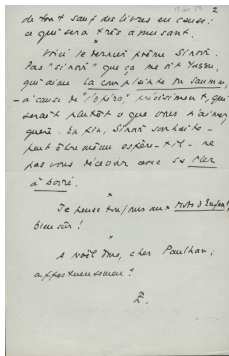 2
de tout sauf des livres en cause :
ce qui sera très amusant.
*
le dernier poème
Pas que ça me dit Yassu,
qui aime la complainte du
- à cause de "l'opéra", précisément, qui
serait plutôt ce que vous n'aimez
guère. En fin, souhaite -
peut être même espère-t-il - ne
pas vous décevoir avec sa Mer
à boire.
*
Je pense toujours aux Mots d'Enfant,
bien sûr !
*
A Noël donc, cher Paulhan,
affectueusement !